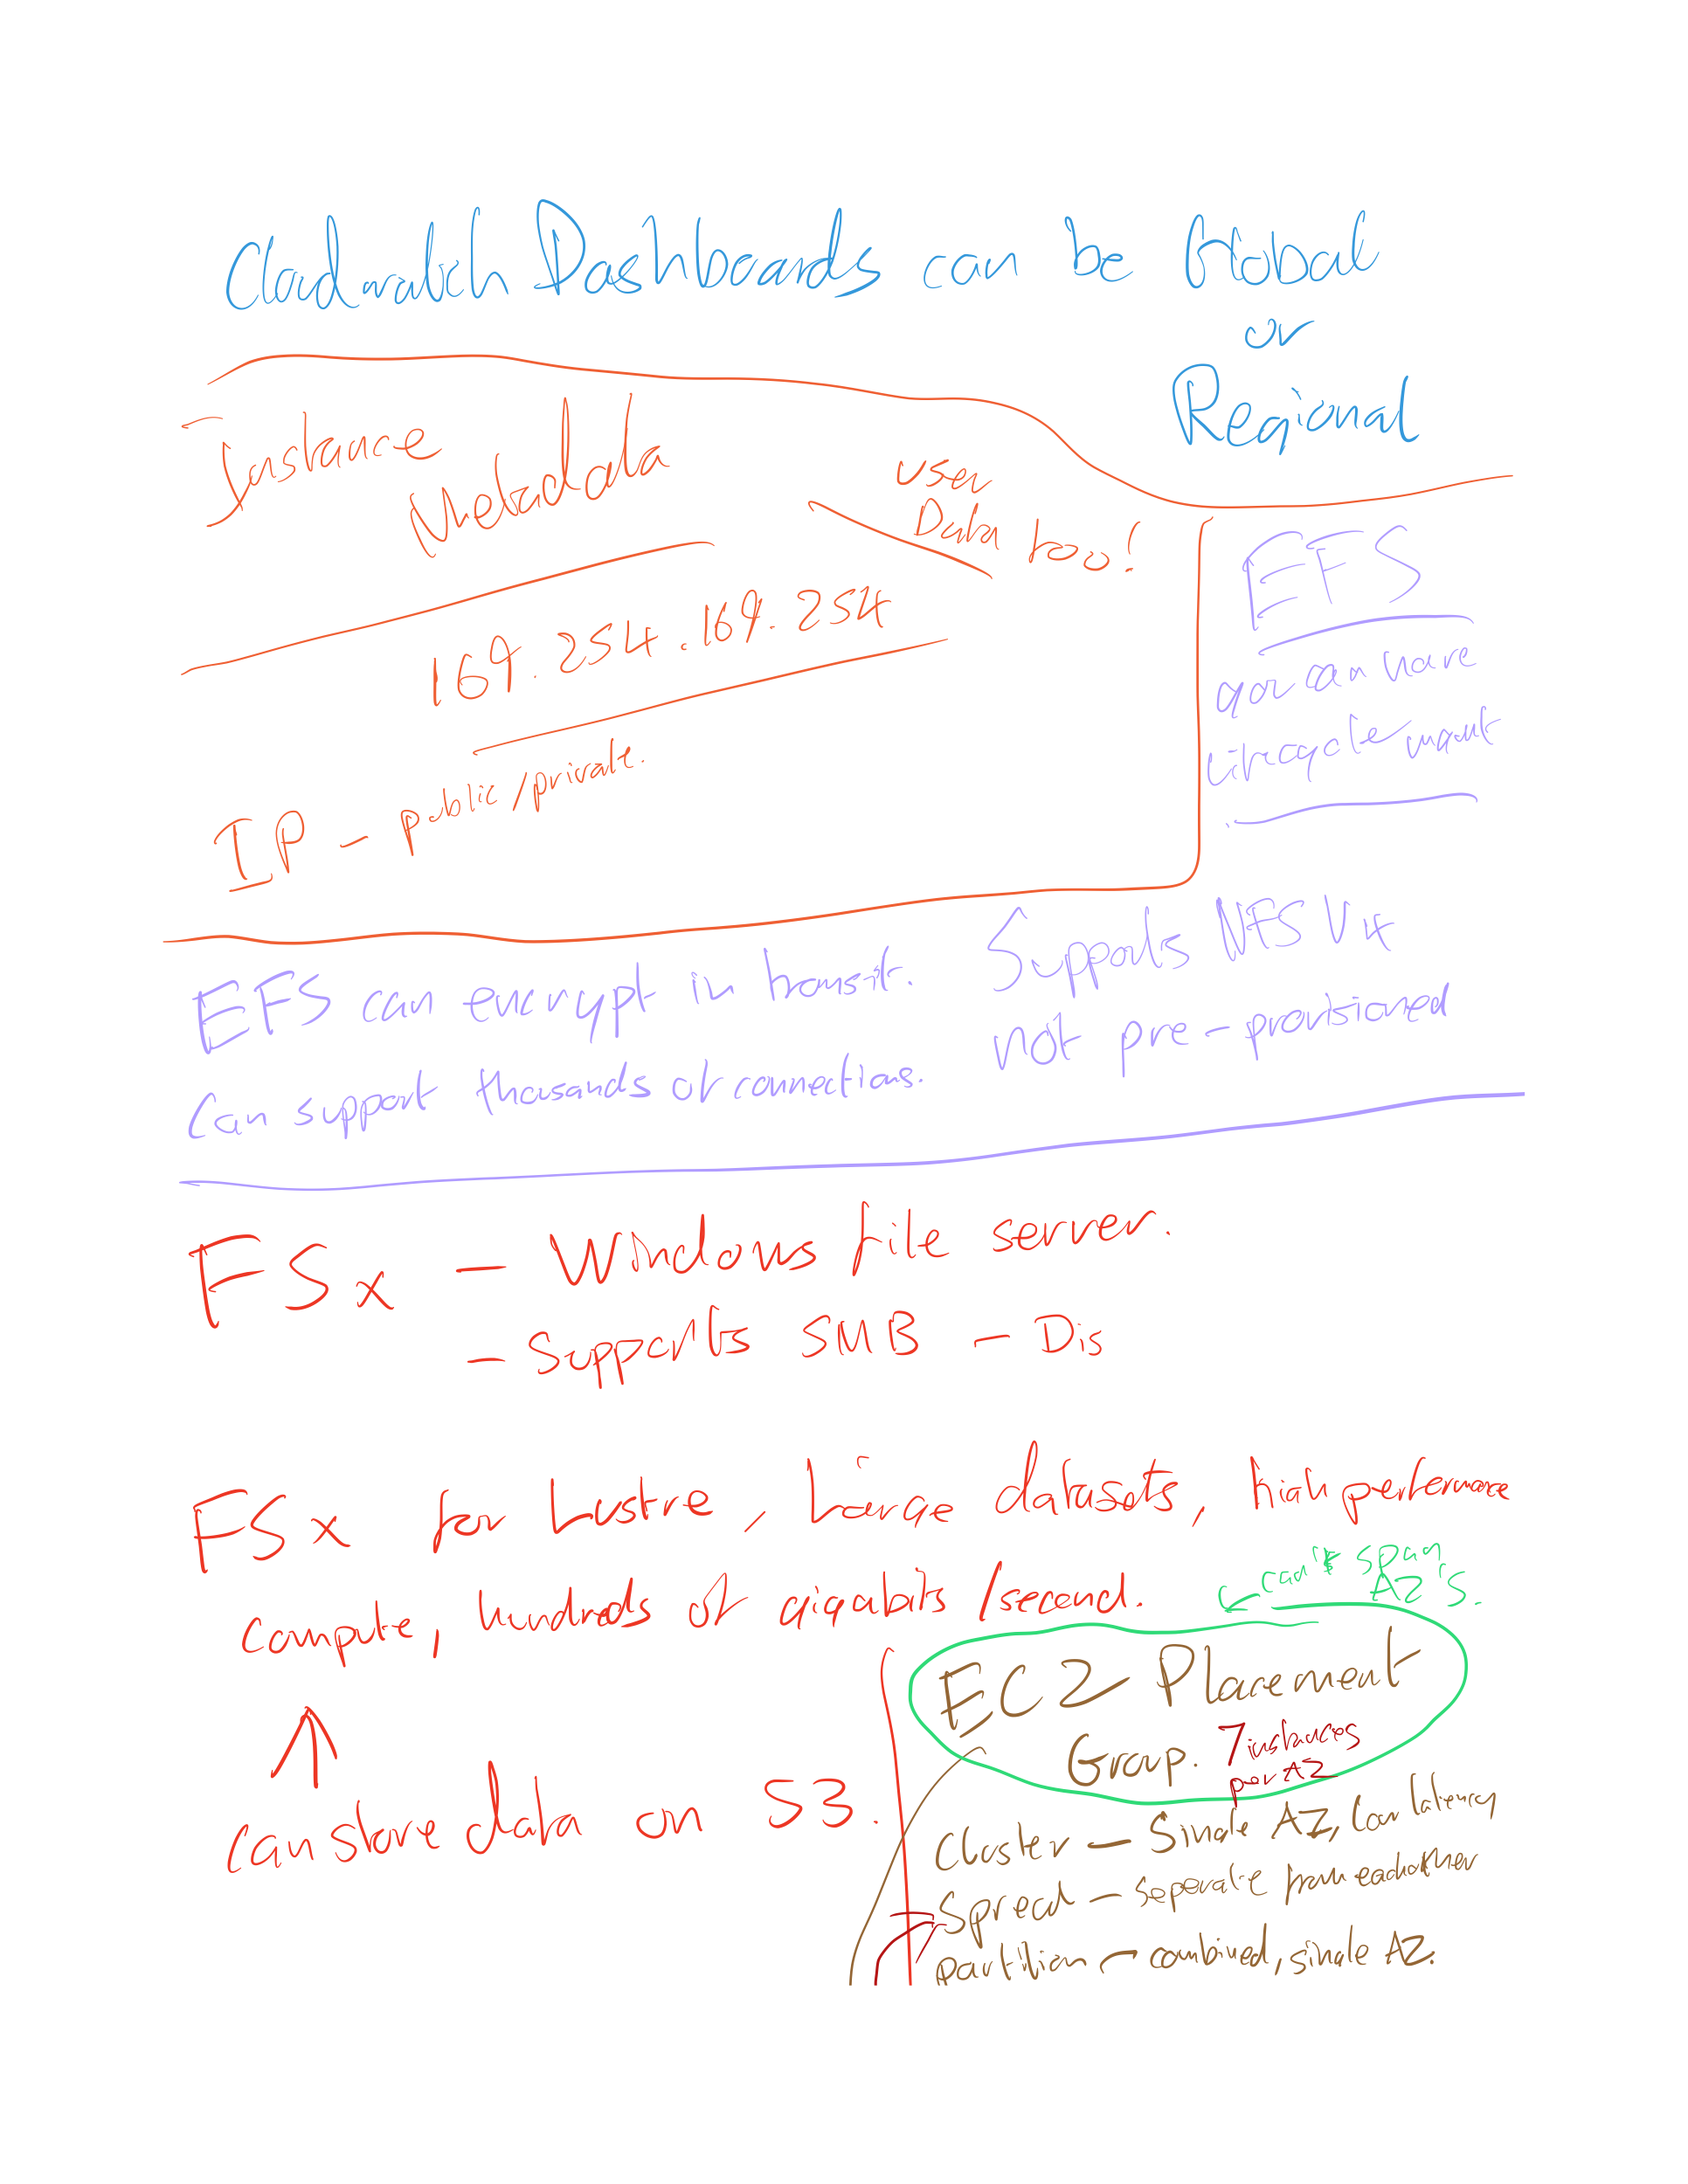 Cloudwatch Dashboards can be Global
or
Regional
Instance
Metadata
User
Data too!
169.254.169.254
IP - public/private.
EFS
you can have
lifecycle mgmt
EFS can encrypt in transit. Supports NFS V4
Can support thousands of connections. not pre-provisioned
FSx - Windows file server.
- Supports SMB - Dis
FSx for Lustre, Large datasets, high performance
compute, hundreds of gigabits/second.
can store data on S3.
can't span
AZ's.
EC2 Placement
Group. 7 instancies
per AZ
Cluster - Single AZ, Low latency
Spread - seperate from eachother
partition - combined, single AZ.